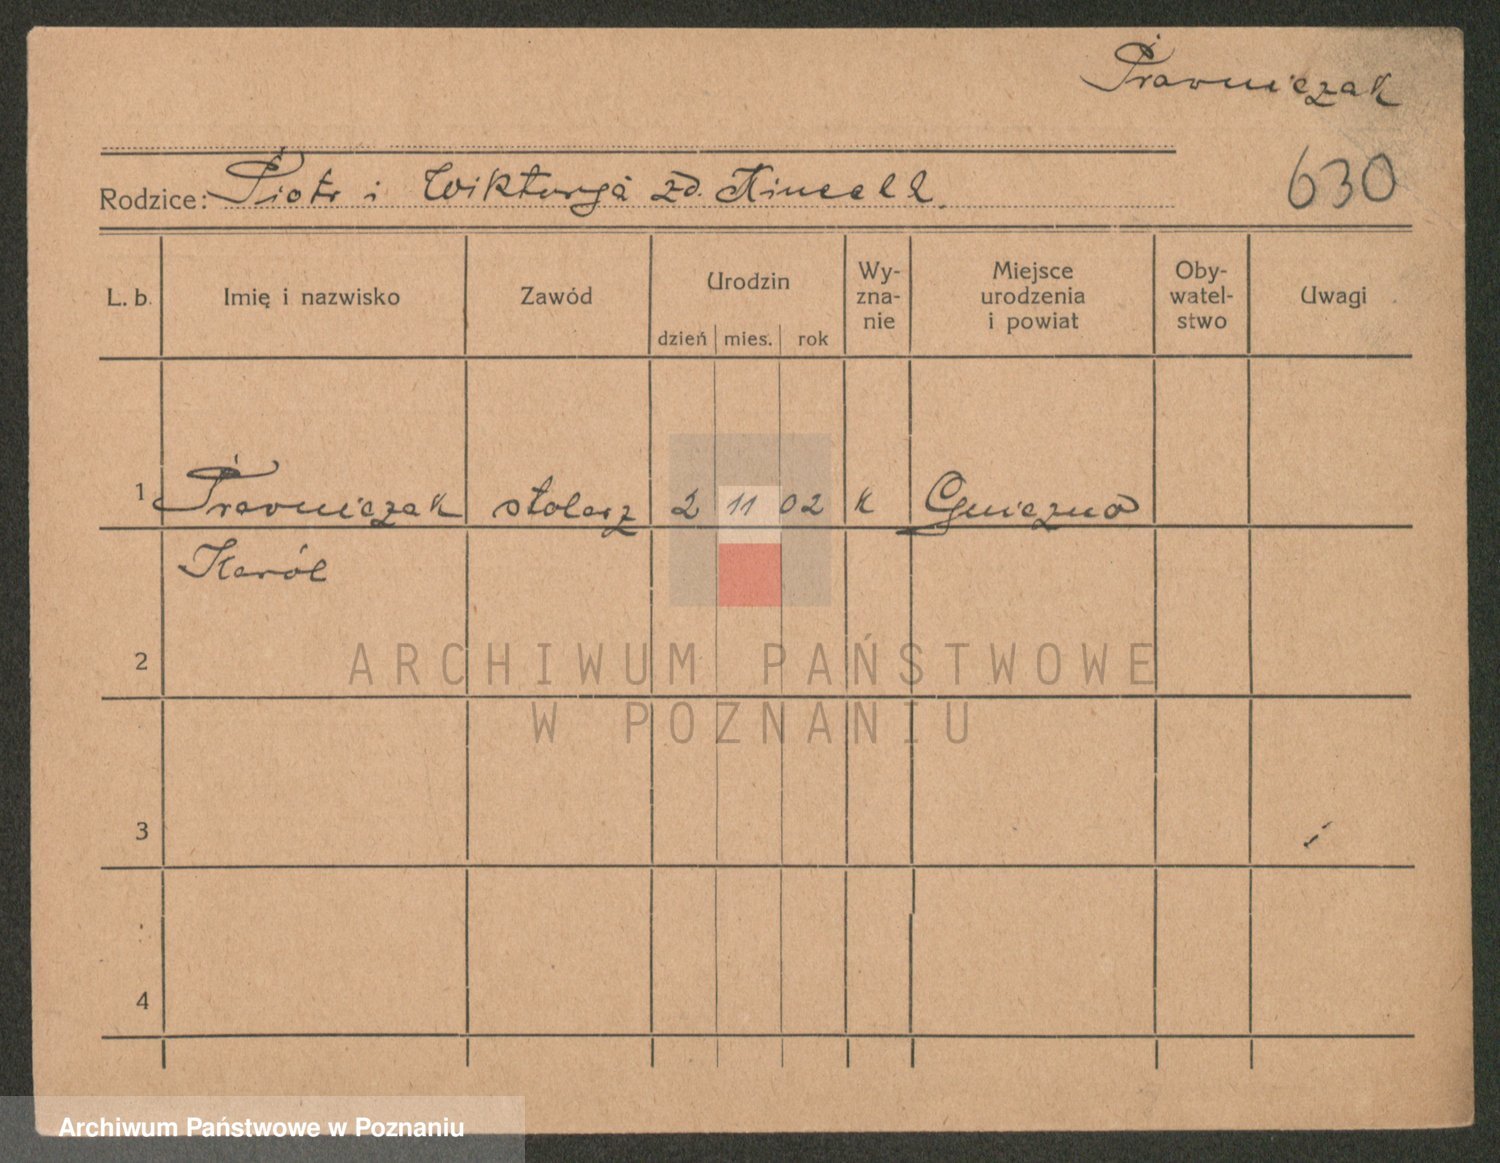 Prawniczak
630
Rodzice: Piotr i Wiktorja zd.
L. b. Imię i nazwisko Zawód Urodzin Wy-zna-nie Miejsce urodzenia i powiat Oby-watel-stwo Uwagi
dzień mies. rok
1 Prawniczak stolarz 2 11 02 k Gniezno
Karól
2
ARCHIWUM PAŃSTWOWE
W POZNANIU
3
4
Archiwum Państwowe w Poznaniu